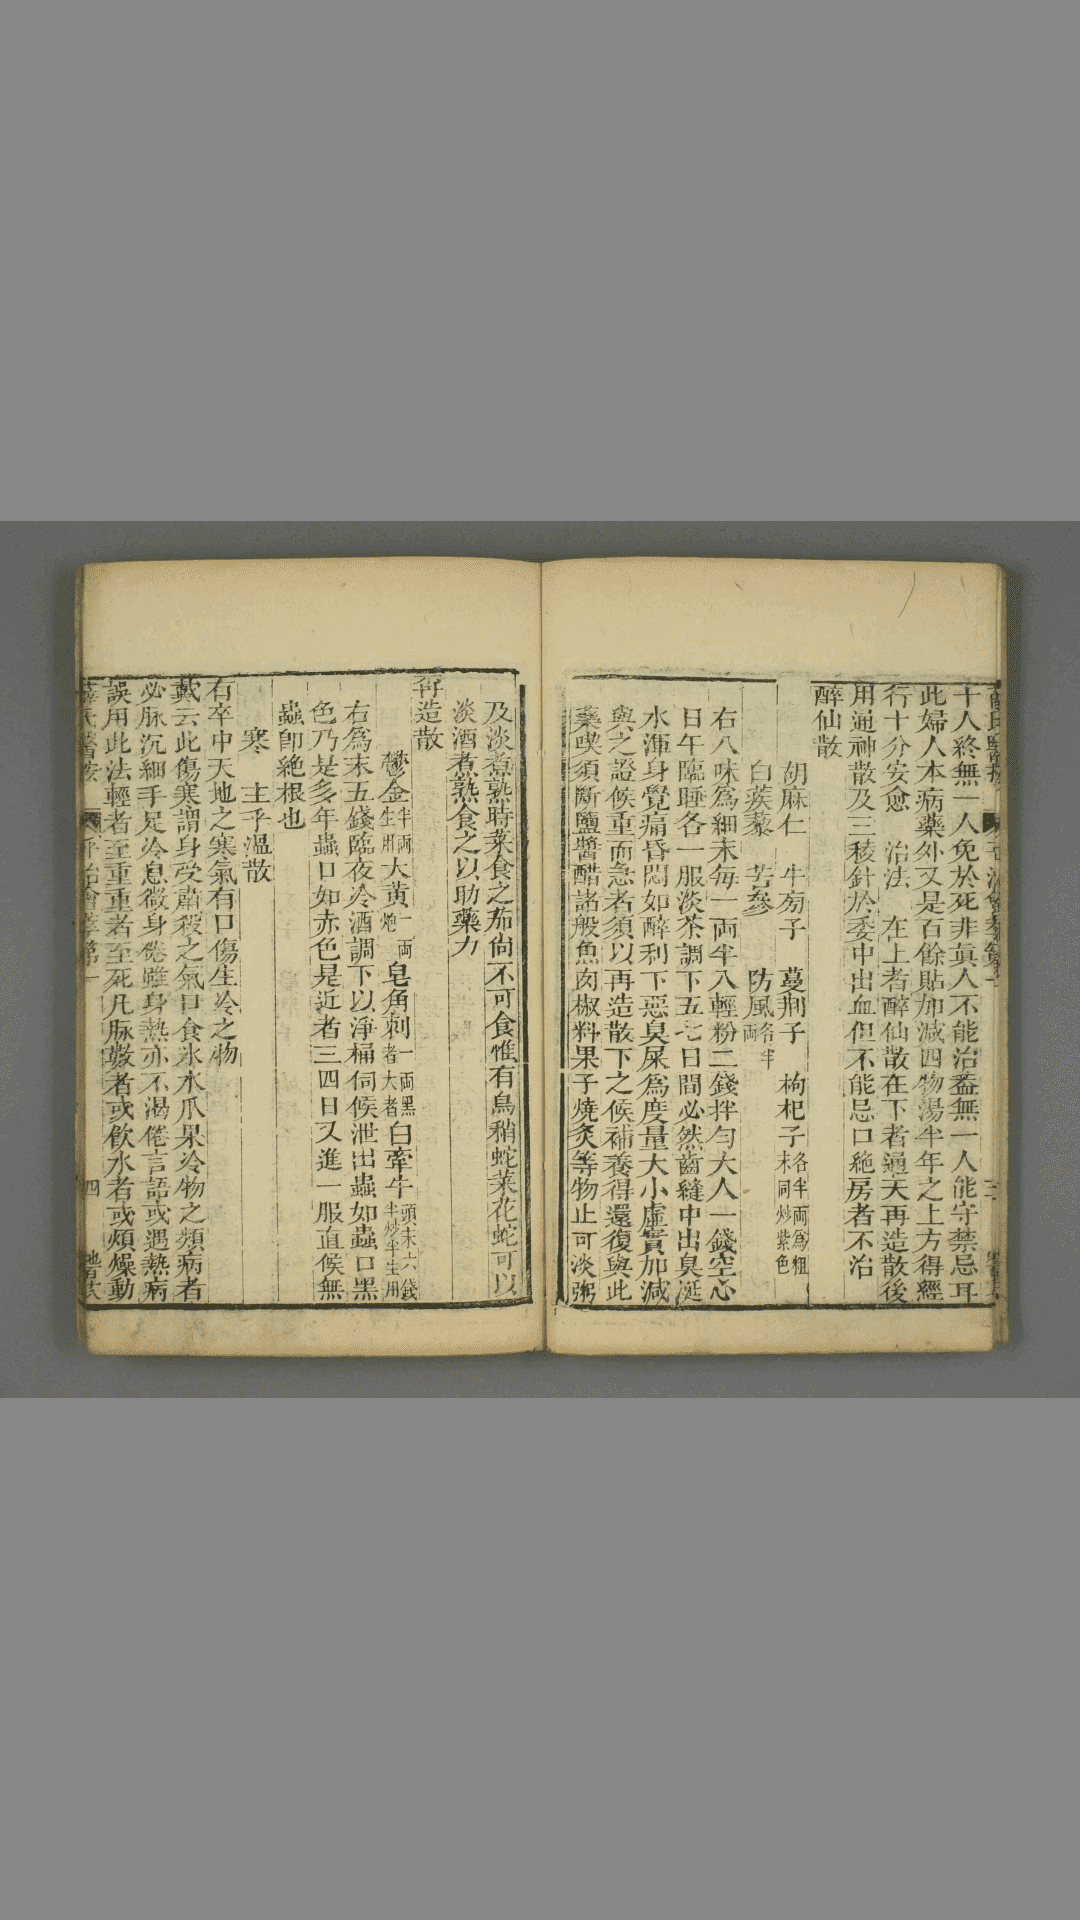 十人終無一人免於死非真人不能治葢無一人能守禁忌耳
此婦人本病藥外又是百餘貼加減四物湯半年之上方得經
行十分安愈　治法　在上者醉仙散在下者通天再造散後
用通神散及三稜針於委中出血但不能忌口絶房者不治
醉仙散
胡麻仁　牛蒡子　蔓荆子　枸杞子各半両為粗末同炒紫色
白蒺藜　苦參　防風各半両
右八味為細末每一両半入輕粉二錢拌勻大人一錢空心
日午臨睡各一服淡茶調下五七日間必然齒縫中出臭涎
水渾身覺痛昏悶如醉利下惡臭屎為度量大小虛實加減
與之證候重而急者須以再造散下之候補養得還復與此
藥喫須斷鹽醬醋諸般魚肉椒料果子燒炙等物止可淡粥
及淡煮熟時菜食之茄尙不可食惟有烏稍蛇菜花蛇可以
淡酒煮熟食之以助藥力
再造散
鬱金半両生用大黄一両炮皂角刺一両黑者大者白牽牛頭末六錢半炒半生用
右為末五錢臨夜冷酒調下以淨桶伺候泄出蟲如蟲口黑
色乃是多年蟲口如赤色是近者三四日又進一服直候無
蟲卽絶根也
寒　主乎溫散
有卒中天地之寒氣有口傷生冷之物
戴云此傷寒謂身受肅殺之氣口食氷水瓜果冷物之類病者
必脉沉細手足冷息微身倦雖身熱亦不渴倦言語或遇熱病
誤用此法輕者至重重者至死凡脉數者或飮水者或煩燥動
薛氏醫按　平治會萃第一　四